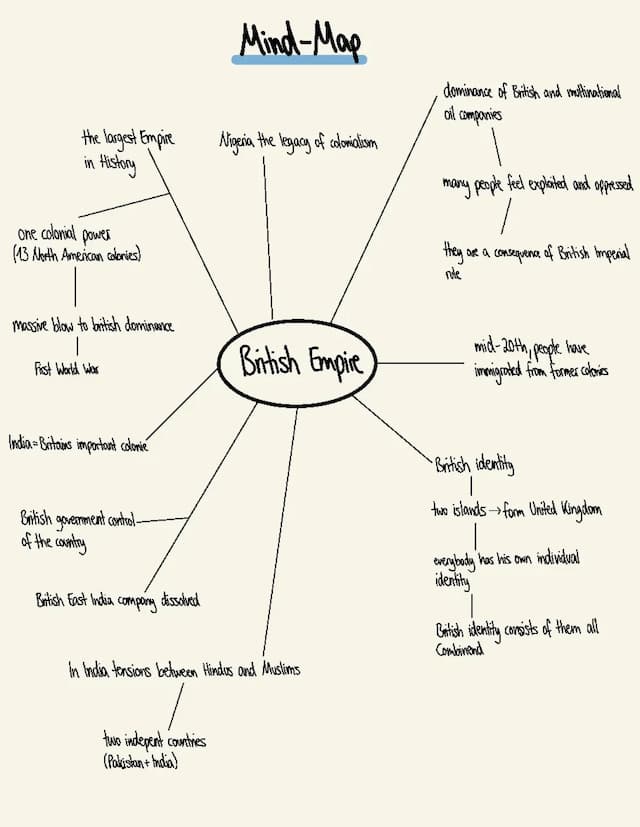 Mind-Map
the largest Empire
in History
one colonial power
(13 North American colonies)
massive blow to british dominance
First World War
Nigeria the legacy of colonialism
dominance of British and multinational
oil companies
many people feel exploited and oppressed
they are a consequence of British Imperial
role
British Empire
mid-20th, people have
immigrated from former colonies
India=Britains important colonie
British government control
of the country
British East India company dissolved
In India tensions between Hindus and Muslims
two indepent countries
(Pakistan + India)
British identity
two islands → form United Kingdom
everybody has his own individual
identity
British identity consists of them all
Combinend